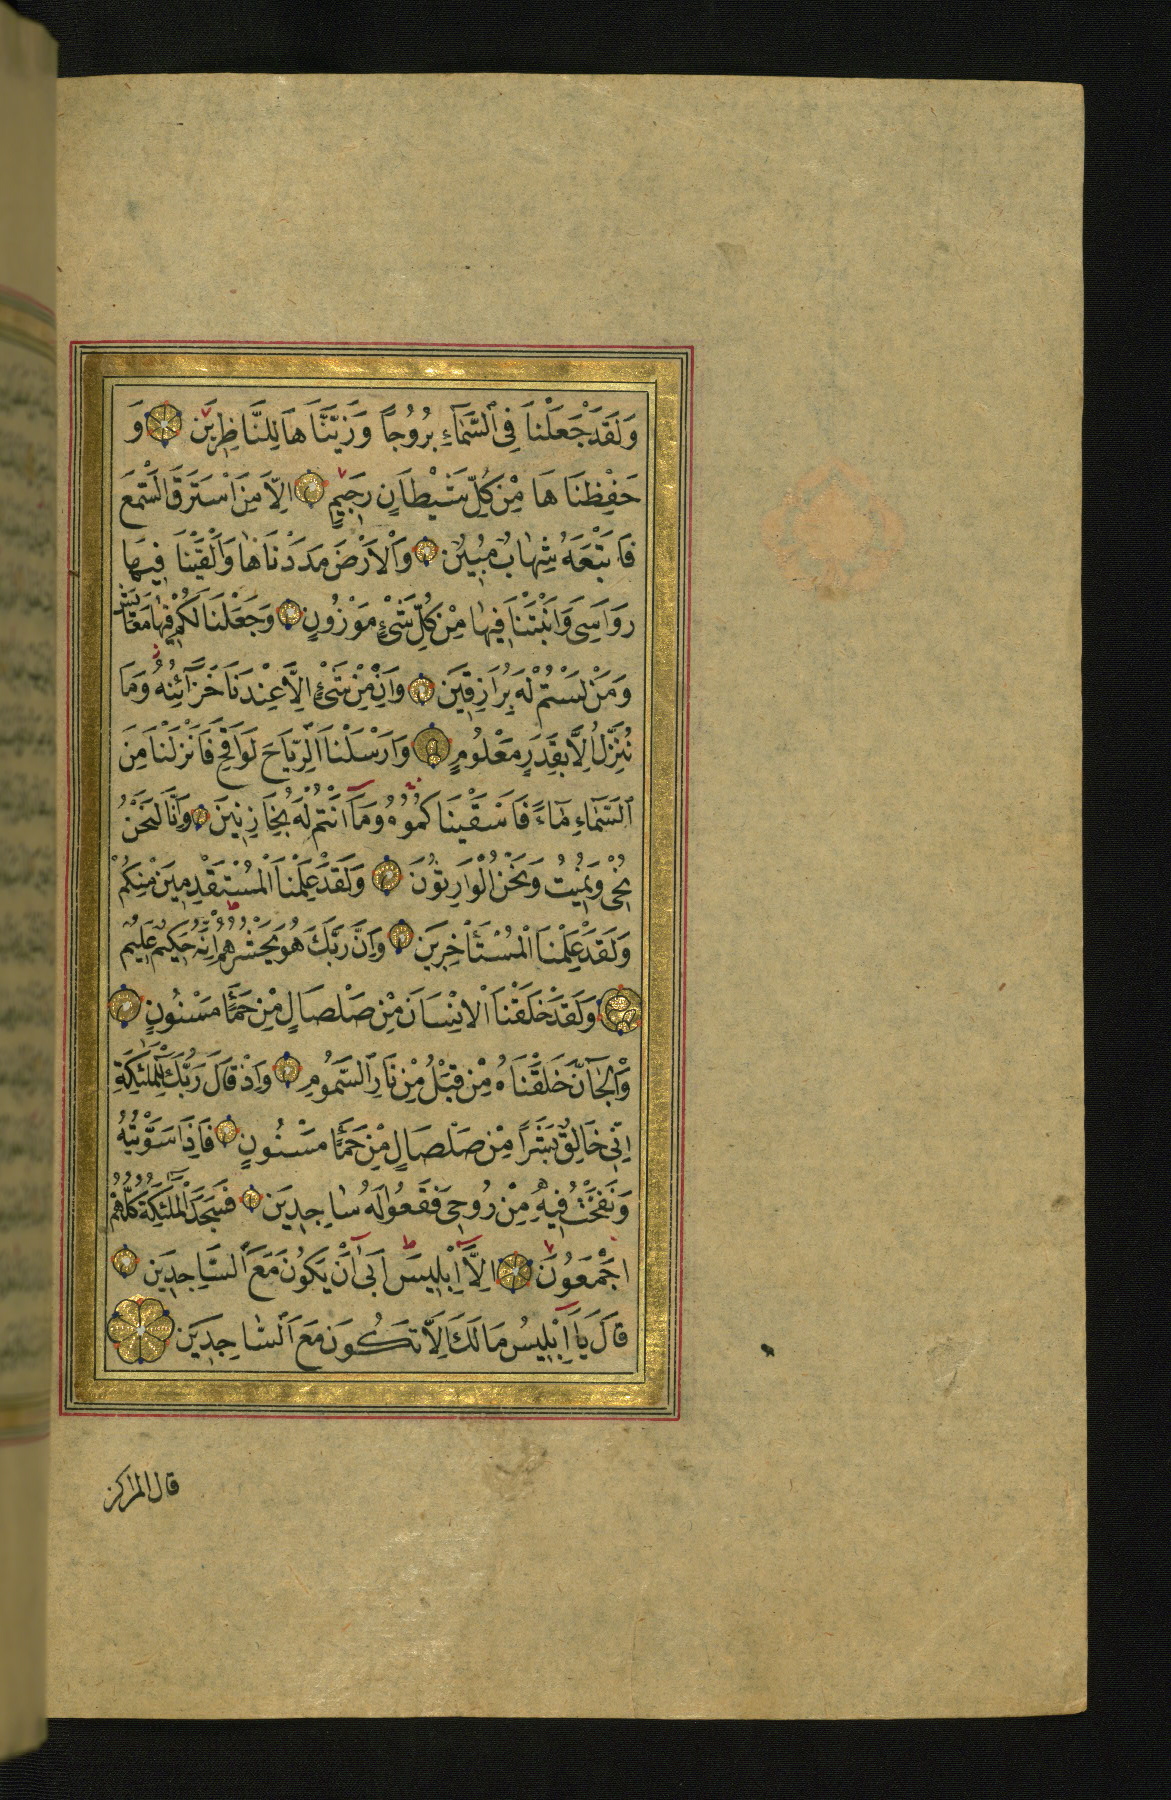 وَلَقَدْ جَعَلْنَا فِي السَّمَاءِ بُرُوجًا وَزَيَّنَّاهَا لِلنَّاظِرِينَ وَ
حَفِظْنَاهَا مِنْ كُلِّ شَيْطَانٍ رَجِيمٍ اِلَّا مَنِ اسْتَرَقَ السَّمْعَ
فَاَتْبَعَهُ شِهَابٌ مُبِينٌ وَالْاَرْضَ مَدَدْنَاهَا وَاَلْقَيْنَا فِيهَا
رَوَاسِيَ وَاَنْبَتْنَا فِيهَا مِنْ كُلِّ شَيْءٍ مَوْزُونٍ وَجَعَلْنَا لَكُمْ فِيهَا مَعَايِشَ
وَمَنْ لَسْتُمْ لَهُ بِرَازِقِينَ وَاِنْ مِنْ شَيْءٍ اِلَّا عِنْدَنَا خَزَائِنُهُ وَمَا
نُنَزِّلُهُ اِلَّا بِقَدَرٍ مَعْلُومٍ وَاَرْسَلْنَا الرِّيَاحَ لَوَاقِحَ فَاَنْزَلْنَا مِنَ
السَّمَاءِ مَاءً فَاَسْقَيْنَاكُمُوهُ وَمَا اَنْتُمْ لَهُ بِخَازِنِينَ وَاِنَّا لَنَحْنُ
نُحْيِي وَنُمِيتُ وَنَحْنُ الْوَارِثُونَ وَلَقَدْ عَلِمْنَا الْمُسْتَقْدِمِينَ مِنْكُمْ
وَلَقَدْ عَلِمْنَا الْمُسْتَأْخِرِينَ وَاِنَّ رَبَّكَ هُوَ يَحْشُرُهُمْ اِنَّهُ حَكِيمٌ عَلِيمٌ
وَلَقَدْ خَلَقْنَا الْاِنْسَانَ مِنْ صَلْصَالٍ مِنْ حَمَأٍ مَسْنُونٍ
وَالْجَانَّ خَلَقْنَاهُ مِنْ قَبْلُ مِنْ نَارِ السَّمُومِ وَاِذْ قَالَ رَبُّكَ لِلْمَلٰئِكَةِ
اِنِّي خَالِقٌ بَشَرًا مِنْ صَلْصَالٍ مِنْ حَمَأٍ مَسْنُونٍ فَاِذَا سَوَّيْتُهُ
وَنَفَخْتُ فِيهِ مِنْ رُوحِي فَقَعُوا لَهُ سَاجِدِينَ فَسَجَدَ الْمَلٰئِكَةُ كُلُّهُمْ
اَجْمَعُونَ اِلَّا اِبْلِيسَ اَبٰى اَنْ يَكُونَ مَعَ السَّاجِدِينَ
قَالَ يَا اِبْلِيسُ مَا لَكَ اَلَّا تَكُونَ مَعَ السَّاجِدِينَ
قال لم اكن